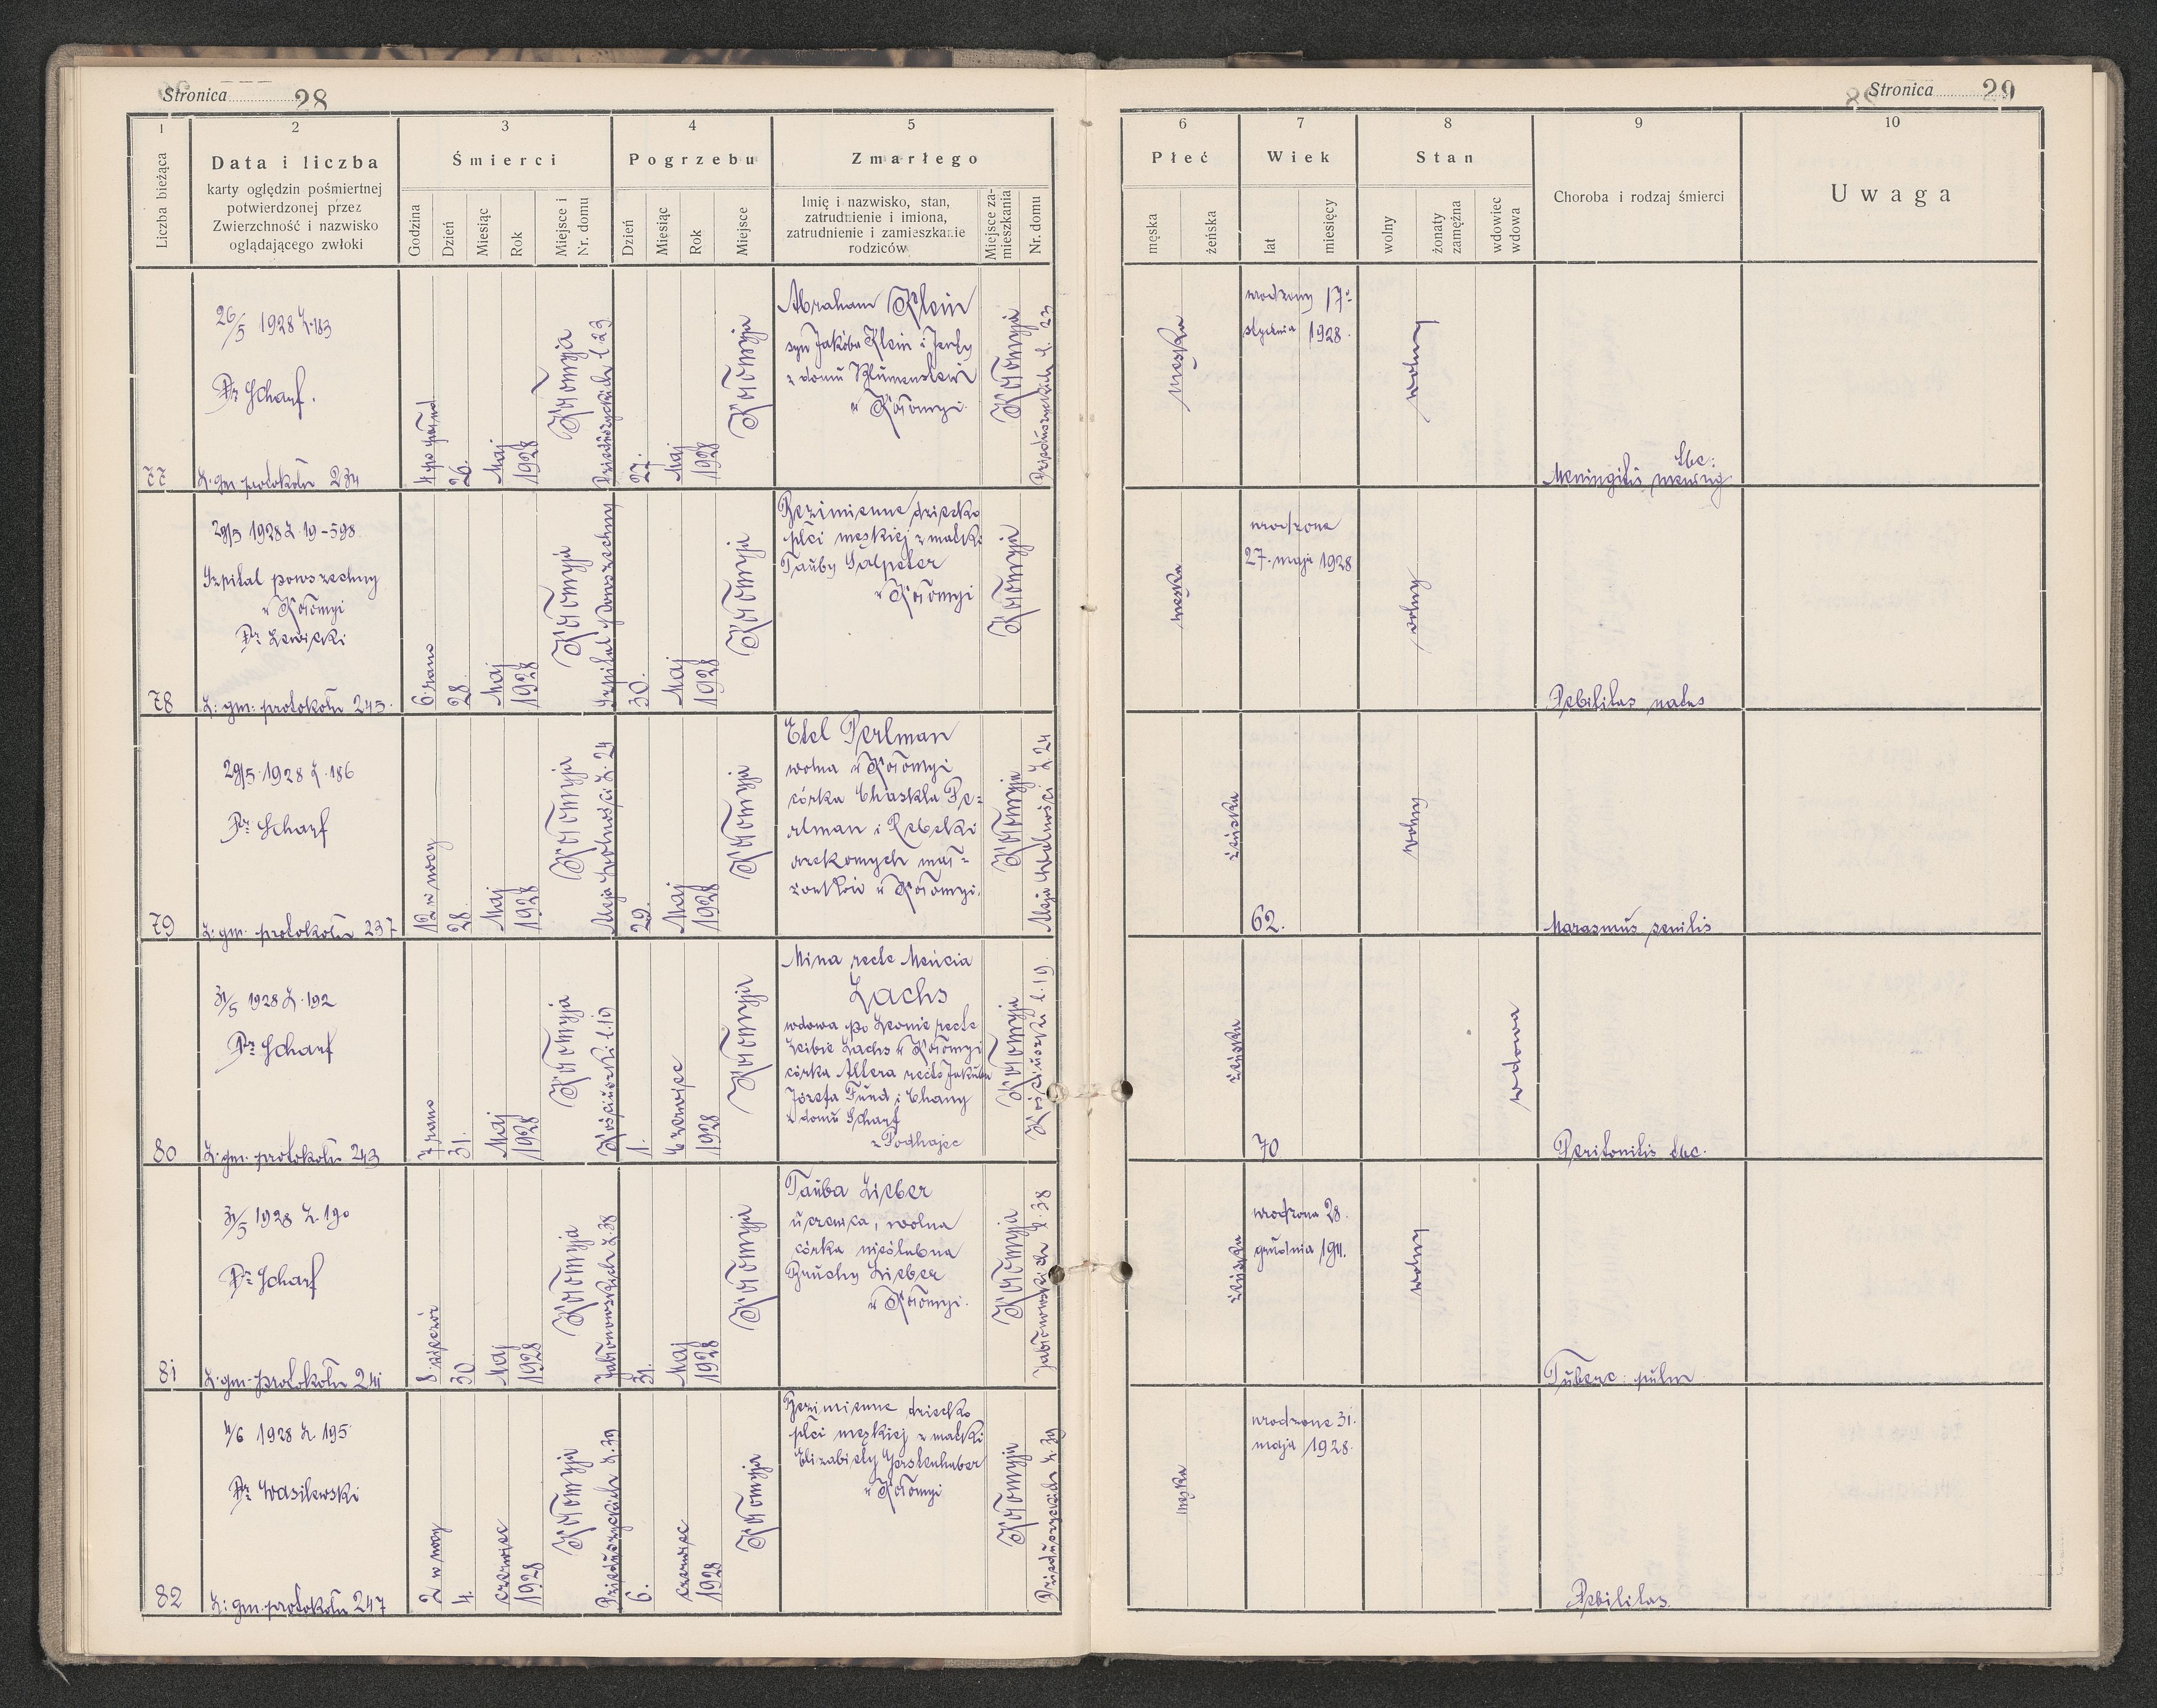 Stronica 28
1
2
3
4
5
Liczba bieżąca
Data i liczba
karty oględzin pośmiertnej
potwierdzonej przez
Zwierzchność i nazwisko
oglądającego zwłoki
Śmierci
Godzina
Dzień
Miesiąc
Rok
Miejsce i
Nr. domu
Pogrzebu
Dzień
Miesiąc
Rok
Miejsce
Zmarłego
Imię i nazwisko, stan,
zatrudnienie i imiona,
zatrudnienie i zamieszkanie
rodziców
Miejsce za-
mieszkania
Nr. domu
77
26/5 1928 L.183
Dr Scharf.
L. gm protokołu 234
4 po połud.
26.
Maj
1928
Kołomyja
Dzieduszyckich l 23
27.
Maj
1928
Kołomyja
Abraham Klein
syn Jakóba Klein i
z domu
w Kołomyi.
Kołomyja
Dzieduszyckich l. 23
78
29/5 1928 L. 19-598.
Szpital powszechny
w Kołomyi
Dr Lewicki
L: gm: protokołu 245.
6 rano
28.
Maj
1928
Kołomyja
Szpital powszechny
30.
Maj
1928
Kołomyja
Bezimienne dziecko
płci męskiej z matki
Tauby Salpeter
w Kołomyi
Kołomyja
79
29/5 1928 L. 186
Dr Scharf
L: gm. protokołu 237
12 w nocy
28.
Maj
1928
Kołomyja
Aleja Wolności L. 24
29.
Maj
1928
Kołomyja
Etel Perlman
wolna w Kołomyi
córka Chaskla Pe-
rlman i Rebeki
rzekomych mał-
żonków w Kołomyi.
Kołomyja
Aleja Wolności L 24
80
31/5 1928 L. 192
Dr Scharf
L. gm. protokołu 243
7 rano
31.
Maj
1928
Kołomyja
Kościuszki l. 19
1.
Czerwiec
1928
Kołomyja
Mina recte Meńcia
Lachs
wdowa po Leonie recte
Leibie Lachs w Kołomyi
córka Altera recte Jakóba
Józefa Fund i Chany
z domu Scharf
z Podhajec
Kołomyja
Kościuszki l. 19.
81
31/5 1928 L. 190
Dr Scharf
L. gm. protokołu 241
8 wieczór
30.
Maj
1928
Kołomyja
Jabłonowskich L 38
31.
Maj
1928
Kołomyja
Tauba Lieber
uczenica, wolna
córka nieślubna
Bruchy Lieber
w Kołomyi.
Kołomyja
Jabłonowskich l. 38
82
4/6 1928 L. 195
Dr Wasilewski
L: gm. protokołu 247
2 w nocy
4.
czerwiec
1928
Kołomyja
Dzieduszyckich L. 39
6.
czerwiec
1928
Kołomyja
Bezimienne dziecko
płci męskiej z matki
Elizabiety Gerstenhaber
w Kołomyi
Kołomyja
Dzieduszyckich L. 39
Stronica 29
6
7
8
9
10
Płeć
męska
żeńska
Wiek
lat
miesięcy
Stan
wolny
żonaty
zamężna
wdowiec
wdowa
Choroba i rodzaj śmierci
Uwaga
męska
urodzony 17.
stycznia 1928.
wolny
tbc:
Meningitis
męska
urodzone
27. maja 1928
wolny
Debilitas natus
żeńska
62.
wolny
Marasmus senilis
żeńska
70
wdowa
Peritonitis tbc.
żeńska
urodzona 28.
grudnia 1911.
wolny
Tuberc: pulm
męska
urodzone 31.
maja 1928.
Debilitas.